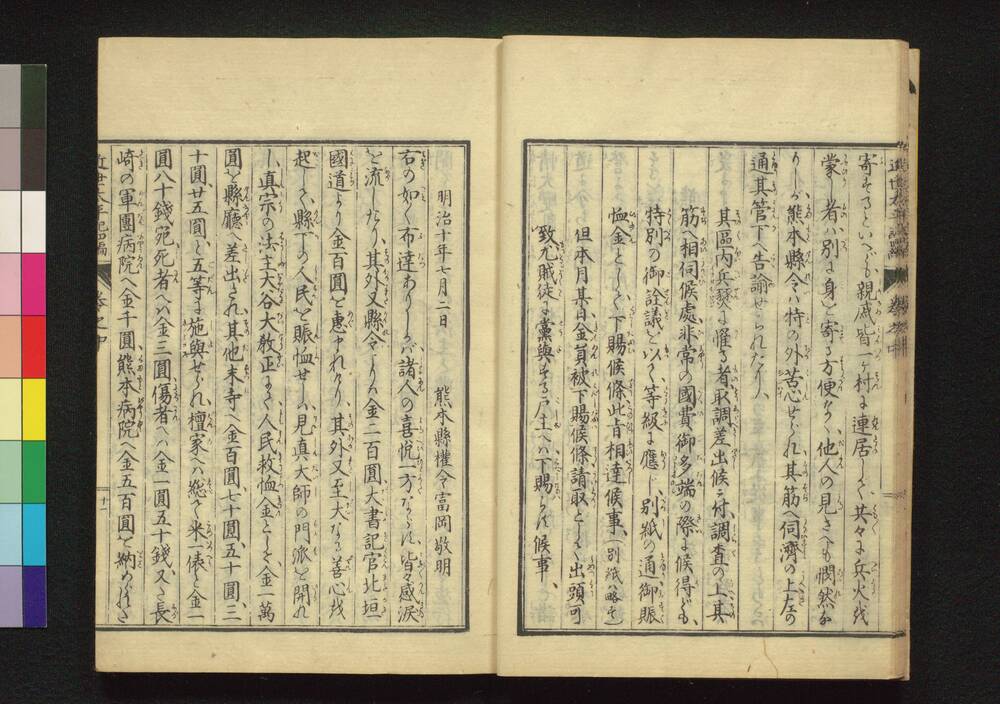 寄するといへども親戚皆一ケ村に連居して其々に兵火を
蒙りし者ハ別に身を寄る方便なく他人の見るさへも憫然な
りしが熊本縣令ハ特の外苦心せられ其筋へ伺濟の上左の
通其管下へ告諭せられたり
其區内兵燹に罹る者取調差出候ニ付調査の上其
筋へ相伺候處非常の國費御多端の際に候得ども
特別の御詮議を以て等級に應じ別紙の通御賑
恤金として下賜候條此旨相達候事(別紙略す)
但本月某日金員被下賜候條請取として出頭可
致尤賊徒に黨與する戸主へハ下賜らず候事
明治十年七月二日 熊本縣權令富岡敬明
右の如く布達ありしかバ諸人の喜悦一方ならず皆々感涙
を流したり其外又縣令より金二百圓大書記官北垣
國道より金百圓を惠まれけり其外又至大なる善心を
起して縣下の人民を賑恤せしハ見真大師の門派を開れ
し真宗の法主大谷大教正にて人民救恤金として金一萬
圓を縣廳へ差出され其他末寺へ金百圓七十圓五十圓三
十圓廿五圓と五等に施與せられ檀家へハ総て米一俵と金一
圓八十錢死者へハ金三圓傷者へハ金一圓五十錢又た長
崎の軍團病院へ金千圓熊本病院へ金五百圓を納められた
近世太平記二編 巻之中
十一